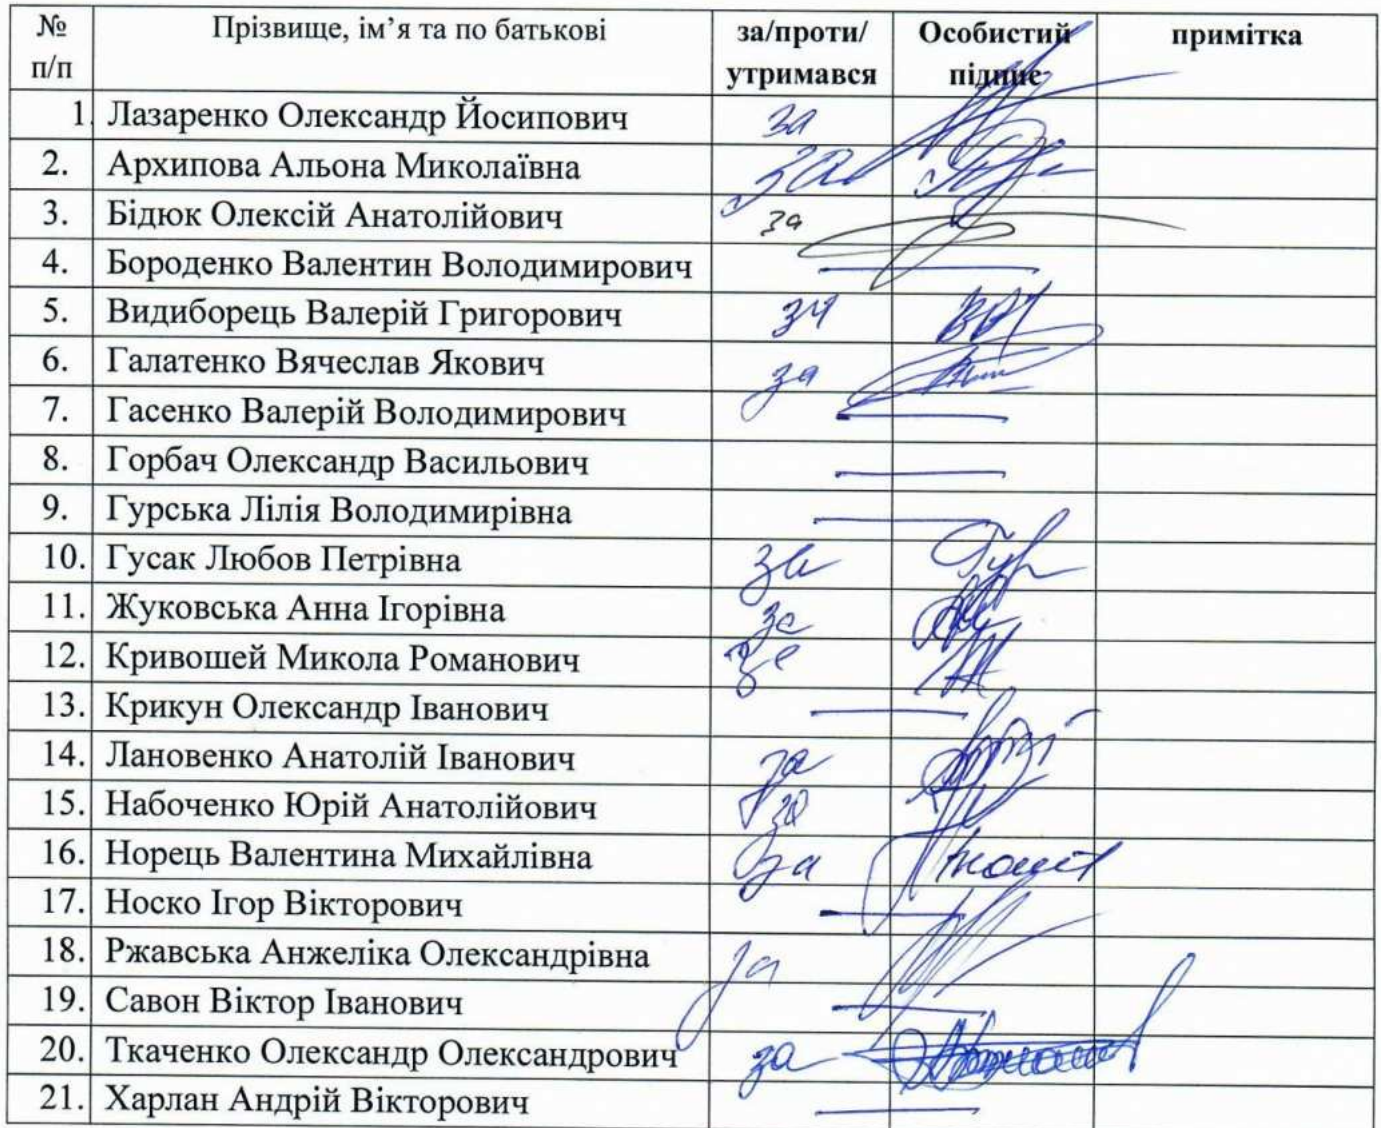 № Прізвище, ім’я та по батькові за/проти/ Особистий примітка
п/п утримався підпис
1. Лазаренко Олександр Йосипович за
2. Архипова Альона Миколаївна за
3. Бідюк Олексій Анатолійович за
4. Бороденко Валентин Володимирович
5. Видиборець Валерій Григорович за
6. Галатенко Вячеслав Якович за
7. Гасенко Валерій Володимирович
8. Горбач Олександр Васильович
9. Гурська Лілія Володимирівна
10. Гусак Любов Петрівна за
11. Жуковська Анна Ігорівна за
12. Кривошей Микола Романович за
13. Крикун Олександр Іванович
14. Лановенко Анатолій Іванович за
15. Набоченко Юрій Анатолійович за
16. Норець Валентина Михайлівна за
17. Носко Ігор Вікторович
18. Ржавська Анжеліка Олександрівна за
19. Савон Віктор Іванович
20. Ткаченко Олександр Олександрович за
21. Харлан Андрій Вікторович